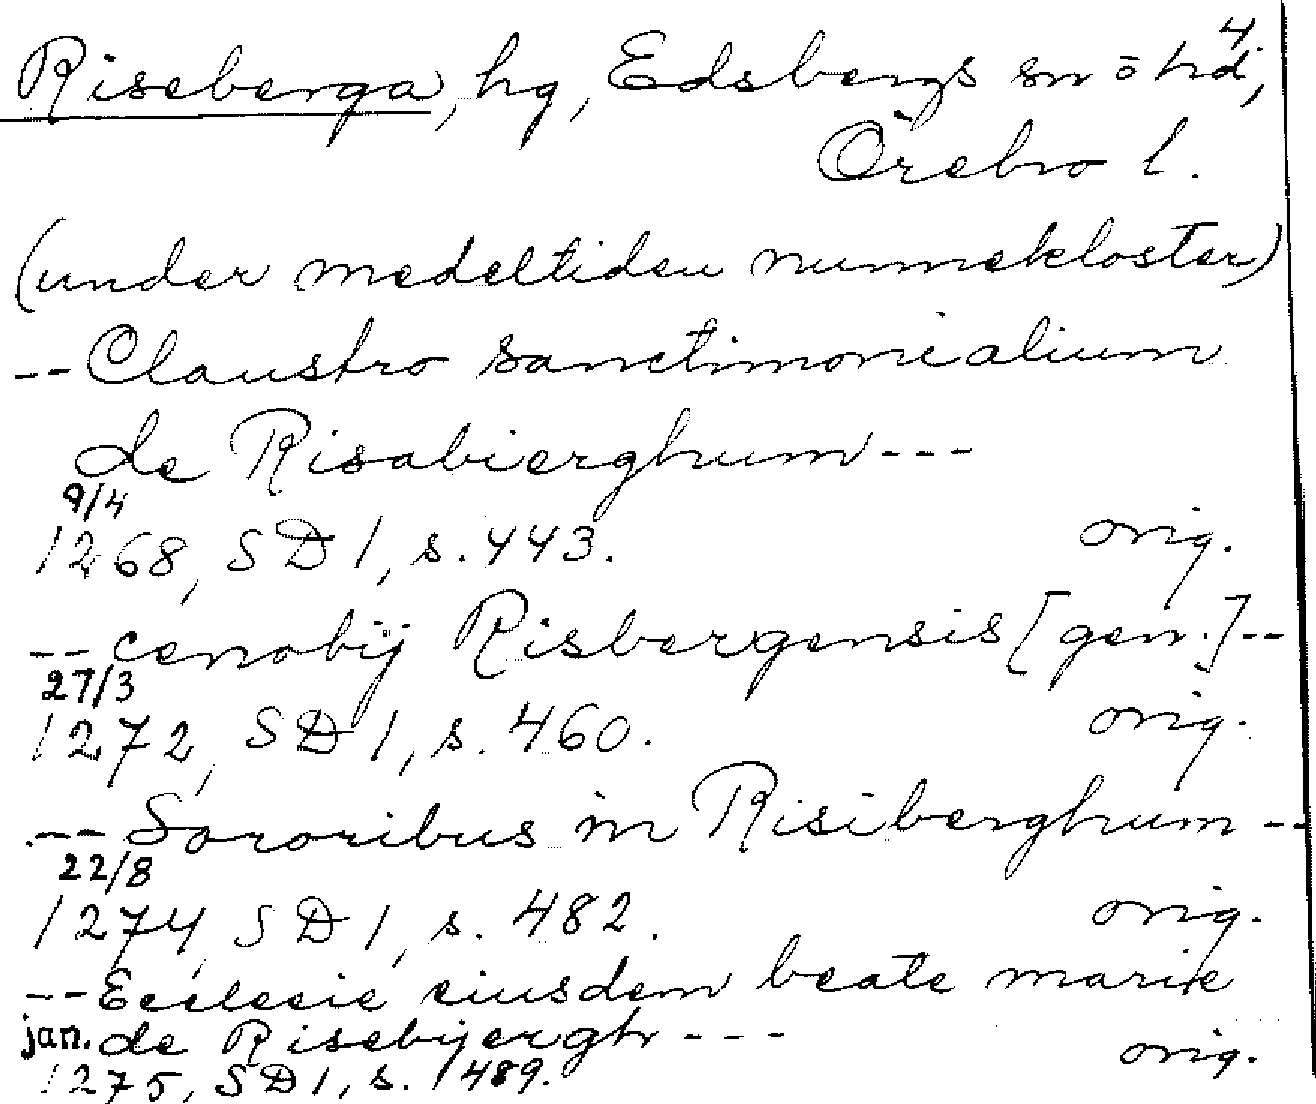 4.
Riseberga, hg, Edsbergs sn o hd,
Örebro l.
(under medeltiden nunnekloster)
-- Claustro sanctimonialium
de Risabierghum ---
9/4
1268, SD 1, s. 443. orig.
-- cenobij Risbergensis [gen.] --
27/3
1272, SD 1, s. 460. orig.
-- Sororibus in Risiberghum --
22/8
1274, SD 1, s. 482. orig.
-- Ecclesie eiusdem beate marie
jan. de Risebyergh --- orig.
1275, SD 1, s. 489.